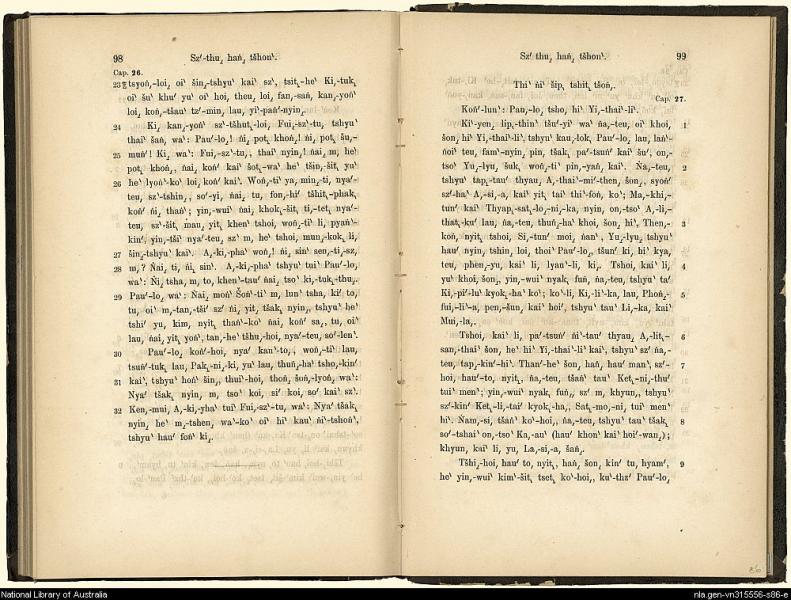 98 Sz'-thu˛ hań˛ tšhon‵.
Cap. 26.
tsyon˛-loi˛ oi‵ šin˛-tshyu‵ kai‵ sz‵, tsit˛-he‵ Ki˛-tuk˛
oi‵ šu‵ khu' yu‵ oi‵ hoi, theu˛ loi, fan˛-sań, kan˛-yoń‵
loi, koń˛-tšau‵ tz'-min, lau, yi‵-pań'-nyin˛.
24 Ki, kan˛-yoń‵ sz‵-tšhut˛-loi, Fui˛-sz‵-tu, tshyu‵
thai‵ šań, wa‵: Pau'-lo˛! ńi, pot˛ khoń˛! ńi, pot˛ šu˛-
25 muń‵! Ki, wa‵: Fui˛-sz‵-tu˛, thai‵ nyin˛! ńai, m, he‵
pot˛ khoń˛, ńai, koń' kai‵ šot˛-wa‵ he‵ tšin˛-šit˛ yu‵
26 he‵ lyoń‵-ko‵ loi, koń' kai‵. Woń˛-ti‵ ya, min˛-ti, nya'-
teu, sz‵-tshin˛, so'-yi, ńai, tu, fon˛-hi' tšhit˛-phak˛
koń' ńi, thań‵; yin˛-wui‵ ńai, khok˛-šit˛ ti˛-tet˛ nya'-
teu, sz‵-šit˛ mau, yit˛ khen‵ tshoi, woń˛-ti‵ li, pyań‵-
kin', yin˛-tši‵ nya'-teu, sz‵ m, he‵ tshoi, mun˛-kok˛ li,
27 šin˛-tshyu‵ kai‵. A˛-ki˛-pha‵ woń˛! ńi, sin‵ sen˛-ti˛-sz˛
28 m˛? Ńai, ti, ńi, sin‵. A˛-ki˛-pha‵ tshyu‵ tui‵ Pau'-lo˛
wa‵: Ńi˛ tsha, m, to, khen‵-tau' ńai, tso‵ ki˛-tuk˛-thu˛.
29 Pau'-lo˛ wa‵: Ńai, moń‵ Šoń˛-ti‵ m, lun‵ tsha, ki' to,
tu, oi‵ m˛-tan˛-tši' sz‵ ńi, yit˛ tšak˛ nyin˛, tshyu‵ he‵
tshi' yu, kim, nyit˛ thań‵-ko‵ ńai, koń' sa˛, tu, oi‵
lau, ńai, yit˛ yoń‵, tan˛-he‵ tšhu˛-hoi, nya'-teu, so'-len‵.
30 Pau'-lo, koń'-hoi, nya' kau‵-to˛, woń˛-ti‵ lau,
tsuń'-tuk˛ lau, Pak˛-ni˛-ki, yu‵ lau, thuń˛-ha‵ tsho˛-kin'
31 kai‵, tshyu‵ hoń‵ šin˛, thui‵-hoi, thoń, šoń˛-lyoń˛ wa‵:
Nya' tšak˛ nyin, m, tso‵ koi, si' koi, so' kai‵ sz‵.
32 Ken˛-mui, A˛-ki˛-yha‵ tui‵ Fui˛-sz‵-tu, wa‵: Nya' tšak˛
nyin, he‵ m˛-tshen, wa‵-ko‵ oi‵ hi‵ kau‵ ńi‵-tshoń‵,
tshyu‵ hau' fon‵ ki˛
Sz' thu˛ hań˛ tšhon‵. 99
Thi‵ ńi‵ šip˛ tshit˛ tšoń˛.
Cap. 27.
Koń'-lun‵: Pau˛-lo˛ tsho, hi‵ Yi˛-thai‵-li‵.
Ki‵-yen, lip˛-thin‵ tšu'-yi‵ wa‵ ńa˛-teu, oi‵ khoi, 1
šon, hi‵ Yi˛-thai‵-li‵, tshyu‵ kau˛-lok˛ Pau'-lo˛ lau, lań‵-
ńoi‵ teu, fam‵-nyin, pin, tšak˛ pa'-tsuń‵ kai‵ šu', on˛-
tso‵ Yu˛-lyu˛ šuk˛ woń˛-ti‵ pin˛-yań, kai‵. Ńa˛-teu, 2
tshyu‵ tap˛-tau' thyau, A˛-thai‵-mi'-then, šon˛ syoń'
sz'-ha‵ A˛-si˛-a, kai‵ yit˛ tai‵ thi‵-foń, ko‵; Ma˛-khi˛-
tun' kai‵ Thyap˛-sat˛-lo˛-ni˛-ka, nyin, on˛-tso‵ A˛-li˛-
that˛-ku' lau, ńa˛-teu, thuń˛-ha‵ khoi, šon, hi‵. Then˛- 3
koń, nyit˛ tshoi, Si˛-tun' moi, ńań‵, Yu˛-lyu, tshyu‵
hau' nyin, tshin, loi, thoi‵ Pau'-lo˛, tšun' ki, hi‵ kya,
teu, phen˛-yu, kai‵ li, lyau‵-li, ki˛. Tshoi, kai‵ li, 4
yu‵ khoi, šon˛, yin˛-wui‵ nyak˛ fuń, ńa˛-teu, tshyu‵ ta'
Ki˛-pi'-lu‵ kyok˛-ha‵ ko‵; ko‵-li, Ki˛-li‵-ka, lau, Phoń˛- 5
fui˛-li‵-a, pen˛-šun, kai‵ hoi', tshyu‵ tau‵ Li˛-ka, kai‵
Mui˛-la˛.
Tshoi, kai‵ li, pa'-tsuń‵ ńi‵-tau' thyau, A˛-lit˛- 6
san˛-thai‵ šon, he‵ hi‵ Yi˛-thai‵-li‵ kai‵, tshyu‵ sz' ńa˛-
teu, tap˛-kin'-hi‵. Than'-he‵ šon, hań, hau' man‵, sz'- 7
hoi, hau'-to, nyit˛, ńa˛-teu, tšań‵ tau‵ Ket˛-ni˛-thu'
tui‵ men‵; yin˛-wui‵ nyak, fuń˛, sz' m, khyun˛, tshyu‵
sz'-kin' Ket˛-li˛-tai' kyok˛-ha˛, Sat˛-mo˛-ni, tui‵ men‵
hi‵. Ńam˛-si, tšań‵ ko‵-hoi˛, ńa˛-teu, tshyu‵ tau‵ tšak˛ 8
so'-tshai‵ on˛-tso‵ Ka˛-au‵ (hau' khon‵ kai‵ hoi'-wan˛);
khyun, kai‵ li, yu, La˛-si˛-a, šań˛.
Tšhi˛-hoi, hau' to, nyit˛, hań, šon, kin' tu, hyam', 9
he‵ yin˛-wui‵ kim‵-šit˛ tset˛ ko‵-hoi˛, ku‵-thz' Pau'-lo˛
National Library of Australia
nla.gen-vn315556-s86-e